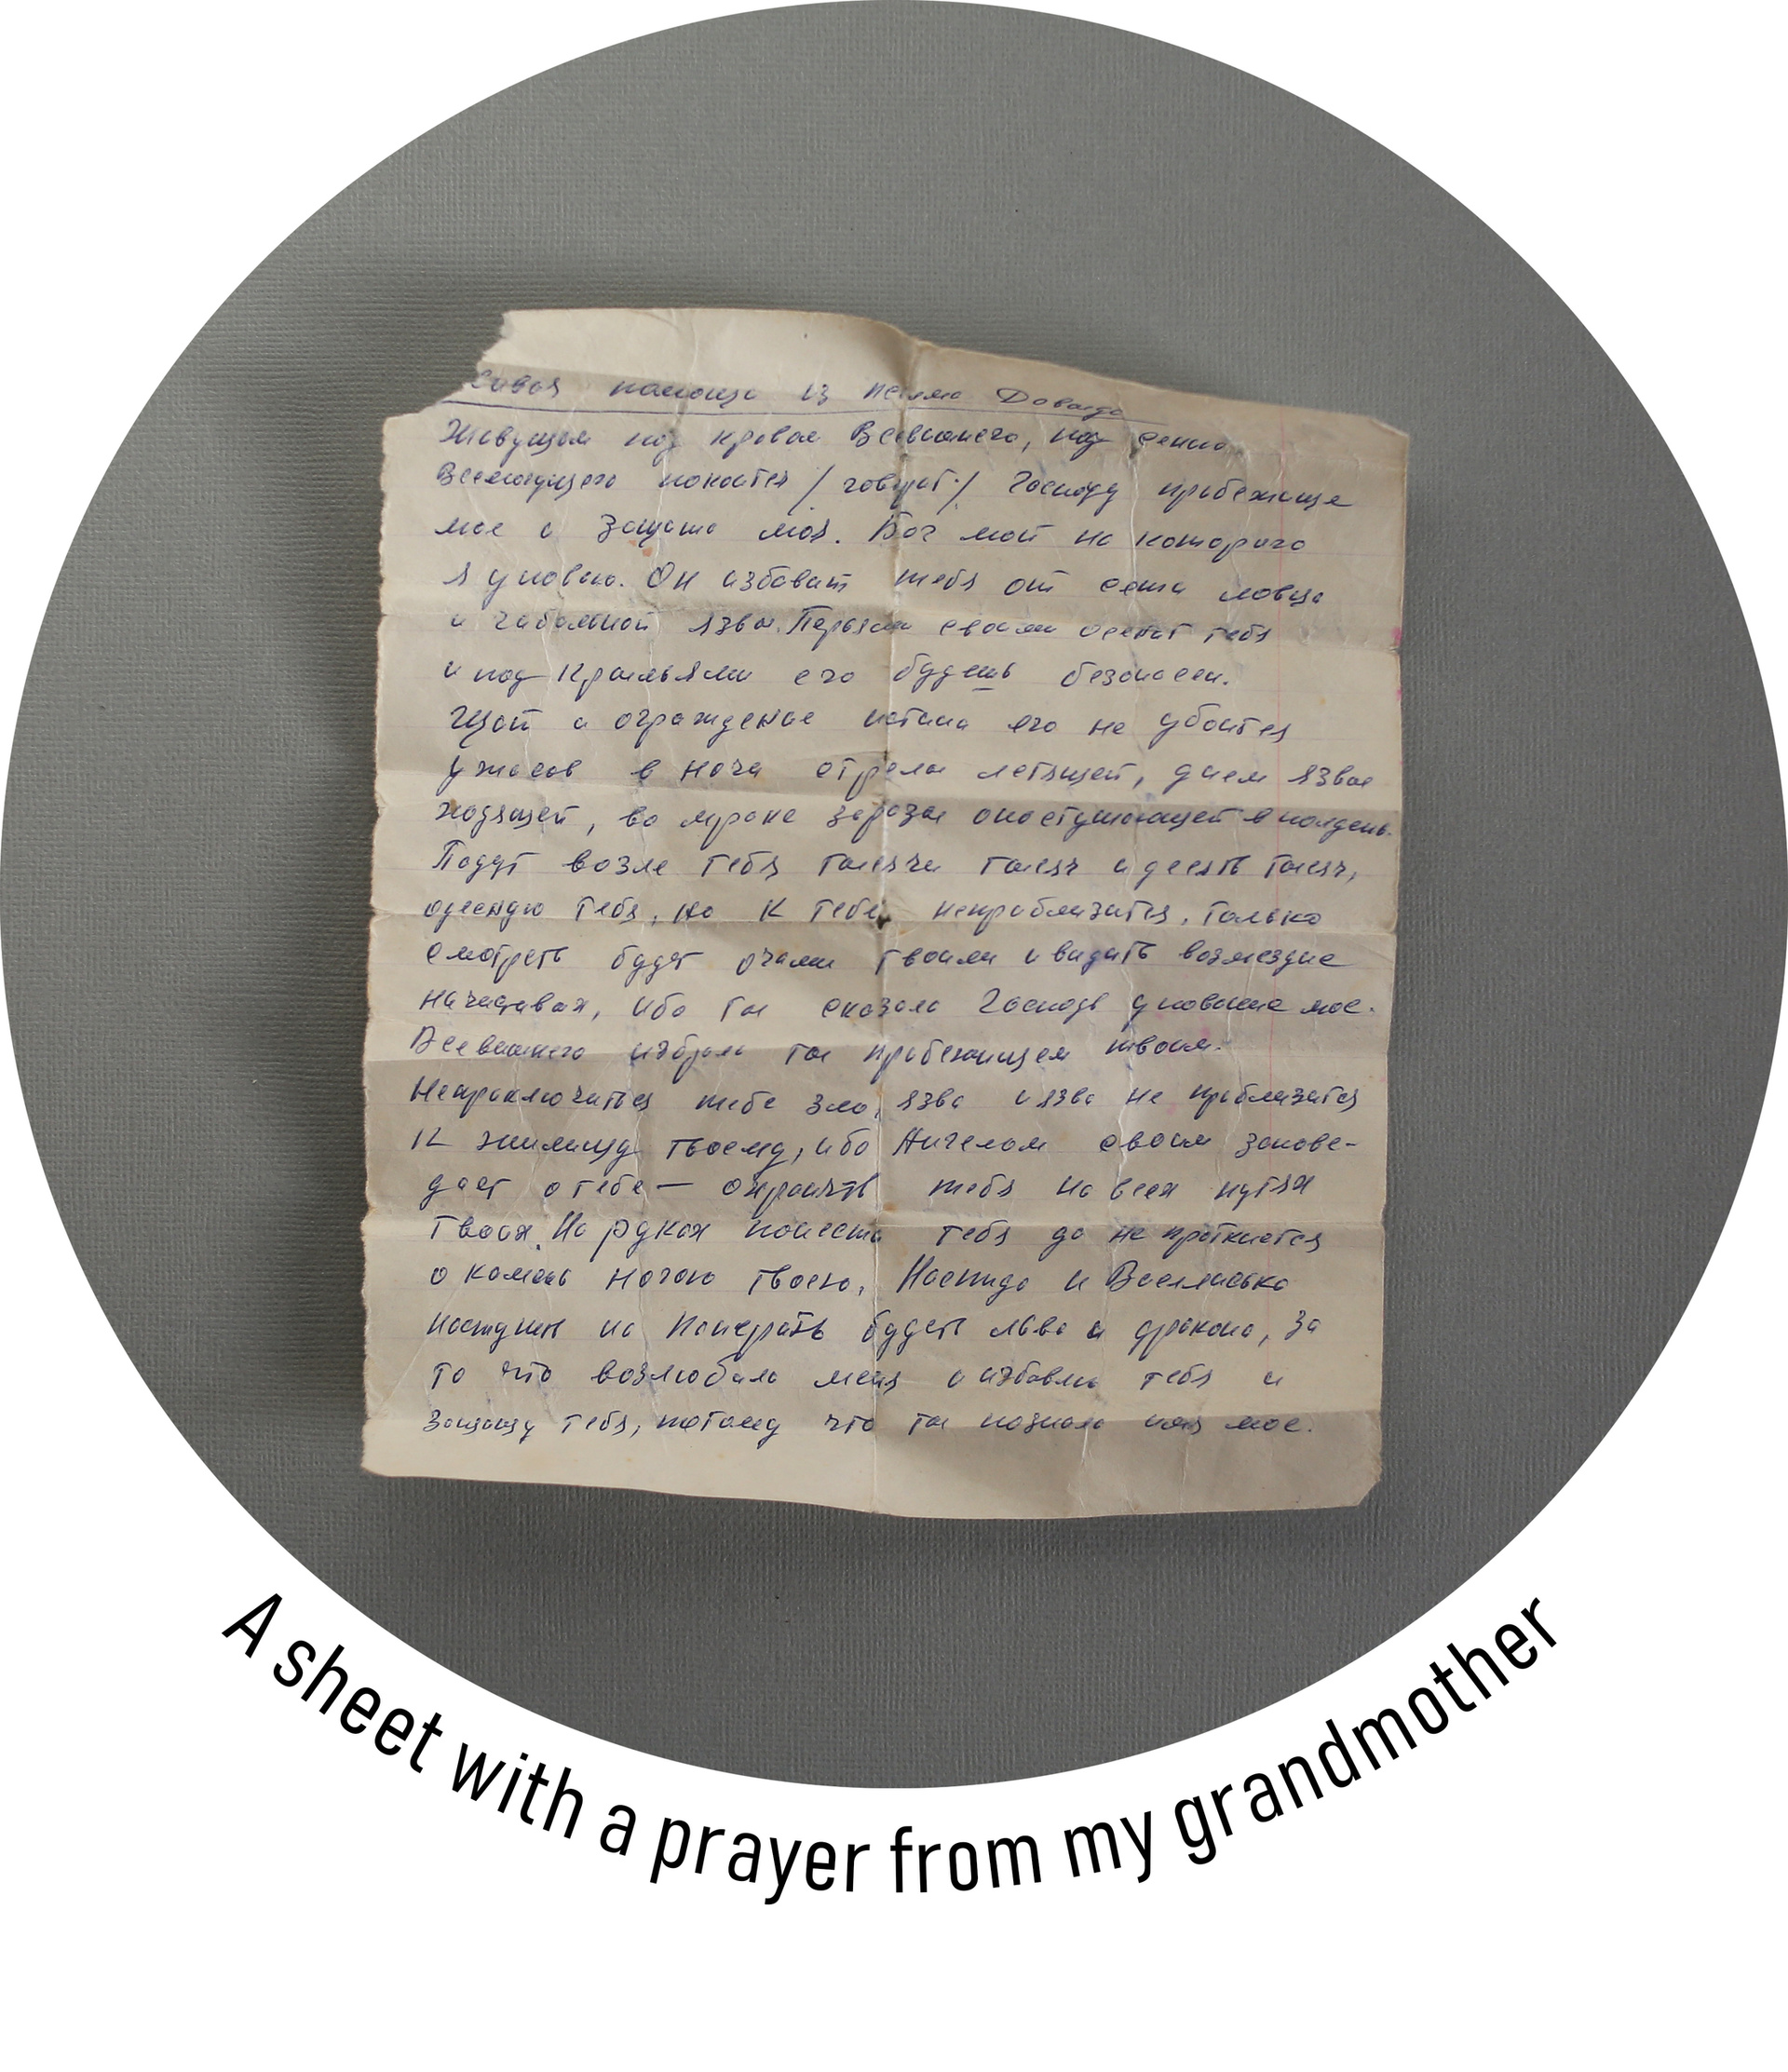 помощь из псалма Давида
Живущем под кровом Всевышнего, под сенью
Всемогущего покоится / говорит / Господу прибежище
мое и защита моя. Бог мой на которого
я уповаю. Он избавит тебя от сети ловца
и гибельной язвы. Перьями своими осенит тебя
и под крыльями его будешь безопасен.
Щит и ограждение истина его не убоится
ужасов в ночи стрелы летящей, днем язвы
ходящей, во мраке заразы опостушающей в полдень.
Подут возле тебя тысячи тысяч и десять тысяч,
одесную тебя, но к тебе неприблизится, только
смотреть будут очами твоими и видить возмездие
начистивых, ибо ты сказала Господь упование мое.
Всевышнего избрала ты прибежищем твоим.
Неприключиться тебе зло, язва и язва не приблизится
к жилищу твоему, ибо Ангелам своим запове-
дает о тебе — охранять тебя на всех путях
твоих. На руках понесть тебя да не проткнется
о камень ногою твоею, Наспида и Василиска
наступит на поперать будеть льва и дракона, за
то что возлюбила меня и избавлю тебя и
защищу тебя, потому что ты познала имя мое.
A sheet with a prayer from my grandmother